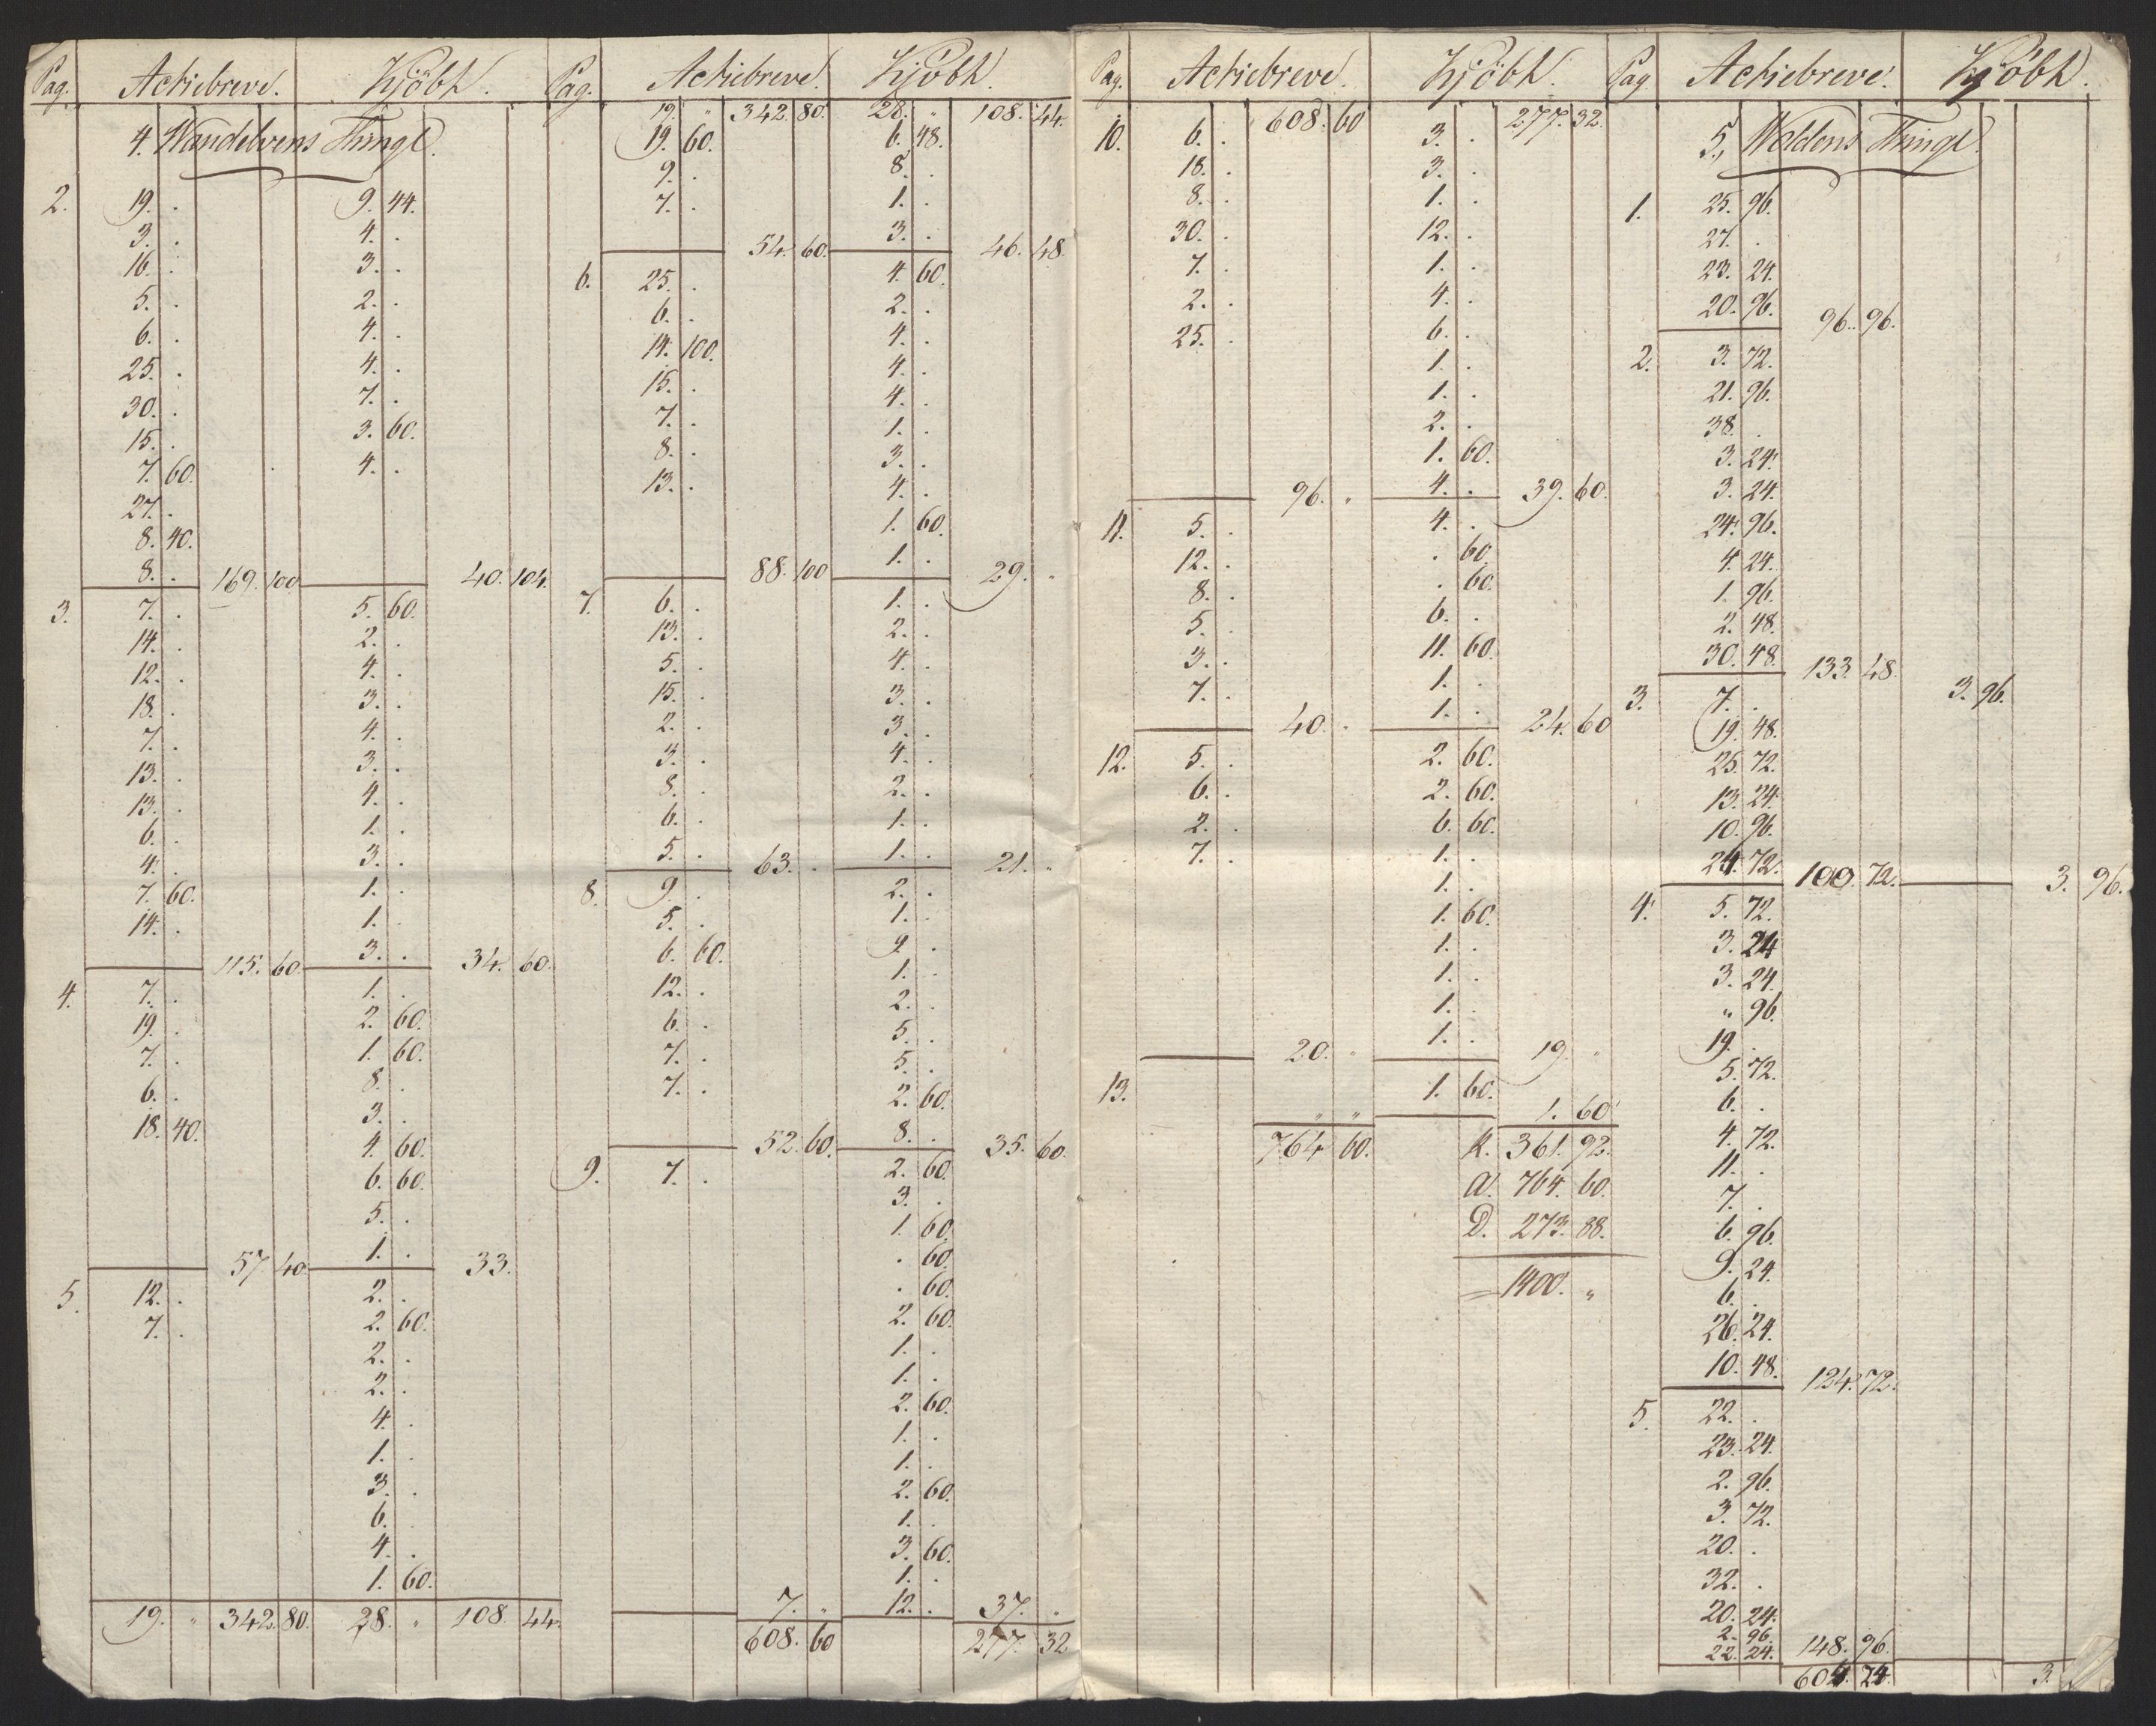 Pag. Actiebreve. Kjöbh.
4. Wandelvens Thingl.
2. 19. . 9. 44.
3. . 4. .
16. . 3. .
5. . 2. .
6. . 4. .
25. . 4. .
30. . 7. .
15. . 3. 60.
7. 60. 4. .
27. .
8. 40.
8. . 169. 100 40. 104.
3. 7. . 5. 60.
14. . 2. .
12. . 4. .
18. . 3. .
7. . 4. .
13. . 3. .
13. . 4. .
6. . 1. .
4. . 3. .
7. 60. 1. .
14. . 1. .
3. .
115. 60. 34. 60.
4. 7. . 1. .
19. . 2. 60.
7. . 1. 60.
6. . 8. .
18. 40. 3. .
4. 60.
6. 60.
5. .
1. .
57. 40. 33.
5. 12. . 2. .
7. . 2. 60.
2. .
2. .
4. .
1. .
3. .
6. .
4. .
1. 60.
19. " 342. 80. 28. " 108. 44.
Pag. Actiebreve. Kjöbh.
19. " 342. 80. 28. " 108. 44.
19. 60. 6. 48.
9. . 8. .
7. . 1. .
3. .
54. 60. 46. 48.
6. 25. . 4. 60.
6. . 2. .
14. 100. 4. .
15. . 4. .
7. . 4. .
8. . 1. .
13. . 3. .
4. .
1. 60.
1. .
88. 100 29. "
7. 6. . 1. .
13. . 2. .
5. . 4. .
15. . 3. .
2. . 3. .
3. . 4. .
8. . 2. .
6. . 1. .
5. . 1. .
63. . 21. "
8. 9. . 2. .
5. . 1. .
6. 60. 9 .
12. . 1. .
6. . 2. .
7. . 5. .
7. . 5. .
2. 60.
8. .
52. 60. 35. 60.
9. 7. . 2. 60.
3. .
1. 60.
. 60.
. 60.
2. 60.
1. .
1. .
2. 60.
1. .
1. .
2. 60.
1. .
3. 60.
1. .
7. " 12. . 37. "
608. 60 277. 32
Pag. Actiebreve. Kjöbh.
608. 60 277. 32.
10. 6. . 3. .
18. . 3. .
8. . 1. .
30. . 12. .
7. . 1. .
2. . 4. .
25. . 6. .
1. .
1. .
2. .
1. 60.
4. .
96. " 39. 60.
11. 5. . 4. .
12. . . 60.
8. . . 60.
5. . 6. .
3. . 11. 60.
7. . 1. .
1. .
40. . 24. 60
12. 5. . 2. 60.
6. . 2. 60.
2. . 6. 60.
7. . 1. .
1. .
1. 60.
1. .
1. .
1. .
1. .
20. " 19. "
13. 1. 60.
" " 1. 60.
764. 60. K. 361. 92.
A. 764. 60.
D. 273. 88.
= 1400. "
Pag. Actiebreve. Kjöbh.
5. Woldens Thingl.
1. 25. 96.
27. .
23. 24.
20. 96.
96. 96.
2. 3. 72.
21. 96.
38. .
3. 24.
3. 24.
24. 96.
4. 24.
1. 96.
2. 48.
30. 48.
133. 48.
3. 7. . 3. 96.
19. 48.
25. 72.
13. 24.
10. 96.
24. 72.
100. 72. 3. 96.
4. 5. 72.
3. 24
3. 24.
" 96.
19. .
5. 72.
6. .
4. 72.
11. .
7. .
6. 96.
9. 24.
6. .
26. 24.
10. 48.
124. 72.
5. 22. .
23. 24.
2. 96.
3. 72.
20. .
32. .
20. 24.
2. 96.
22. 24. 148. 96.
604. 24. 3.